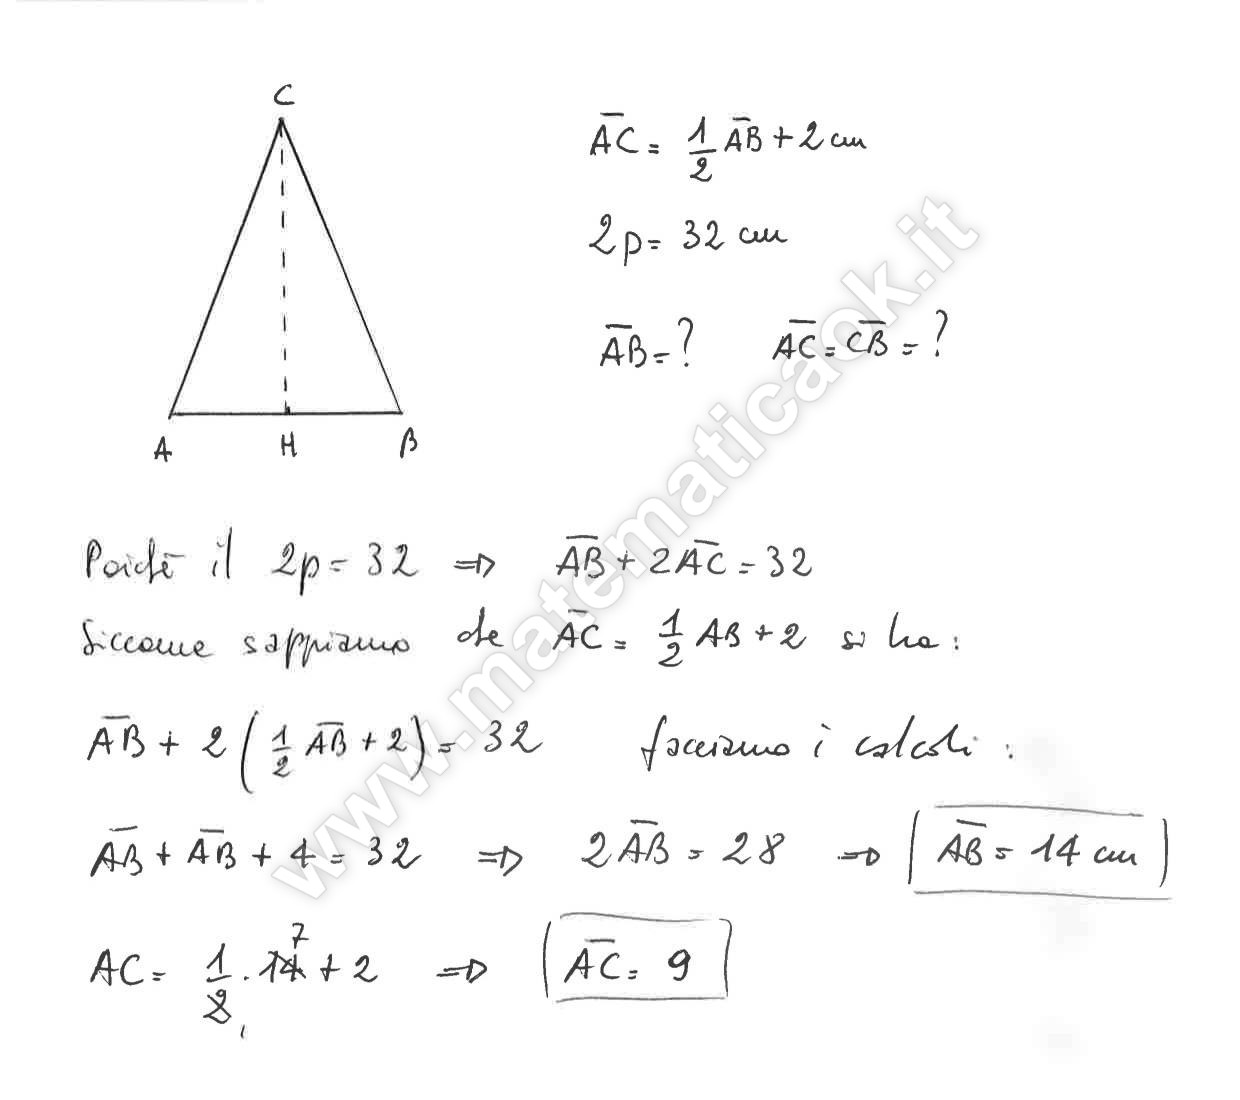 C
A̅C̅ = 1/2 A̅B̅ + 2 cm
2p = 32 cm
A̅B̅ = ? A̅C̅ = C̅B̅ = ?
A H B
Poiché il 2p = 32 ⇒ A̅B̅ + 2A̅C̅ = 32
Siccome sappiamo che A̅C̅ = 1/2 AB + 2 si ha :
A̅B̅ + 2 (1/2 A̅B̅ + 2) = 32 facciamo i calcoli :
A̅B̅ + A̅B̅ + 4 = 32 ⇒ 2A̅B̅ = 28 ⇒ A̅B̅ = 14 cm
AC = 1/2 · 14 7 + 2 ⇒ A̅C̅ = 9
www.matematicaok.it